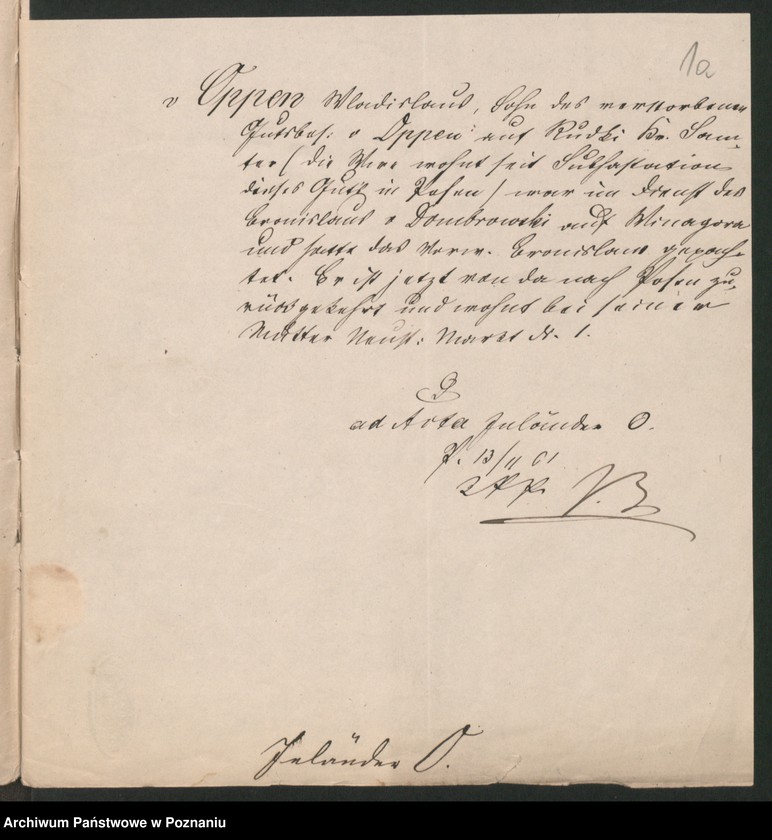 1a
v Oppen Wladislaus, Sohn des verstorbenen
Gutsbes: v Oppen auf Rudki Kr. Sam-
ter (die Wwe wohnt seit Subhastation
dieses Guts in Posen) war im Dienst des
Bronislaus v Dombrowski auf Winagora
und hatte das Vorw. Bronislaw gepach-
tet. Er ist jetzt von da nach Posen zu-
rückgekehrt und wohnt bei seiner
Mutter Neust: Markt N. 1.
ad Acta Inländer O.
P. 13/11 61
Inländer O.
Archiwum Państwowe w Poznaniu